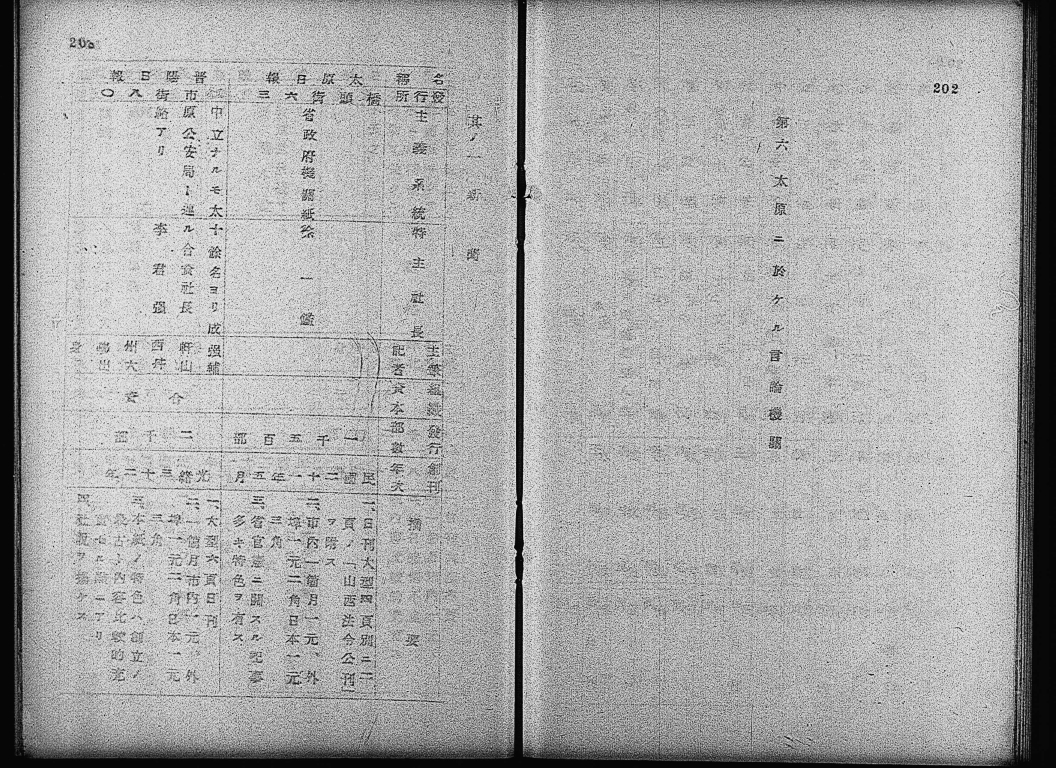 202
第六 太原ニ於ケル言論機關
203
其ノ一 新聞
名稱
發行所
主義系統
特主社長
主筆記者
組織資本
發行部數
創刊年次
摘要
太原日報
橋頭街六三
省政府機關紙
徐一鑑
一千五百部
民國二十一年五月
一、日刊大型四頁別ニ二
頁ノ「山西法令公刊」
ヲ附ス
二、市内一箇月一元、外
埠一元二角日本一元
三角
三、省官憲ニ關スル記事
多キ特色ヲ有ス
晋陽日報
市街八〇
中立ナルモ太
原公安局ト連
絡アリ
十餘名ヨリ成
ル合資社長
李君强
合資
二千部
光緒三十二年
一、大型六頁日刊
二、一個月市内一元、外
埠一元二角日本一元
三角
三、本紙ノ特色ハ創立ノ
最古ト内容比較的充
四、社説ヲ掲ケス